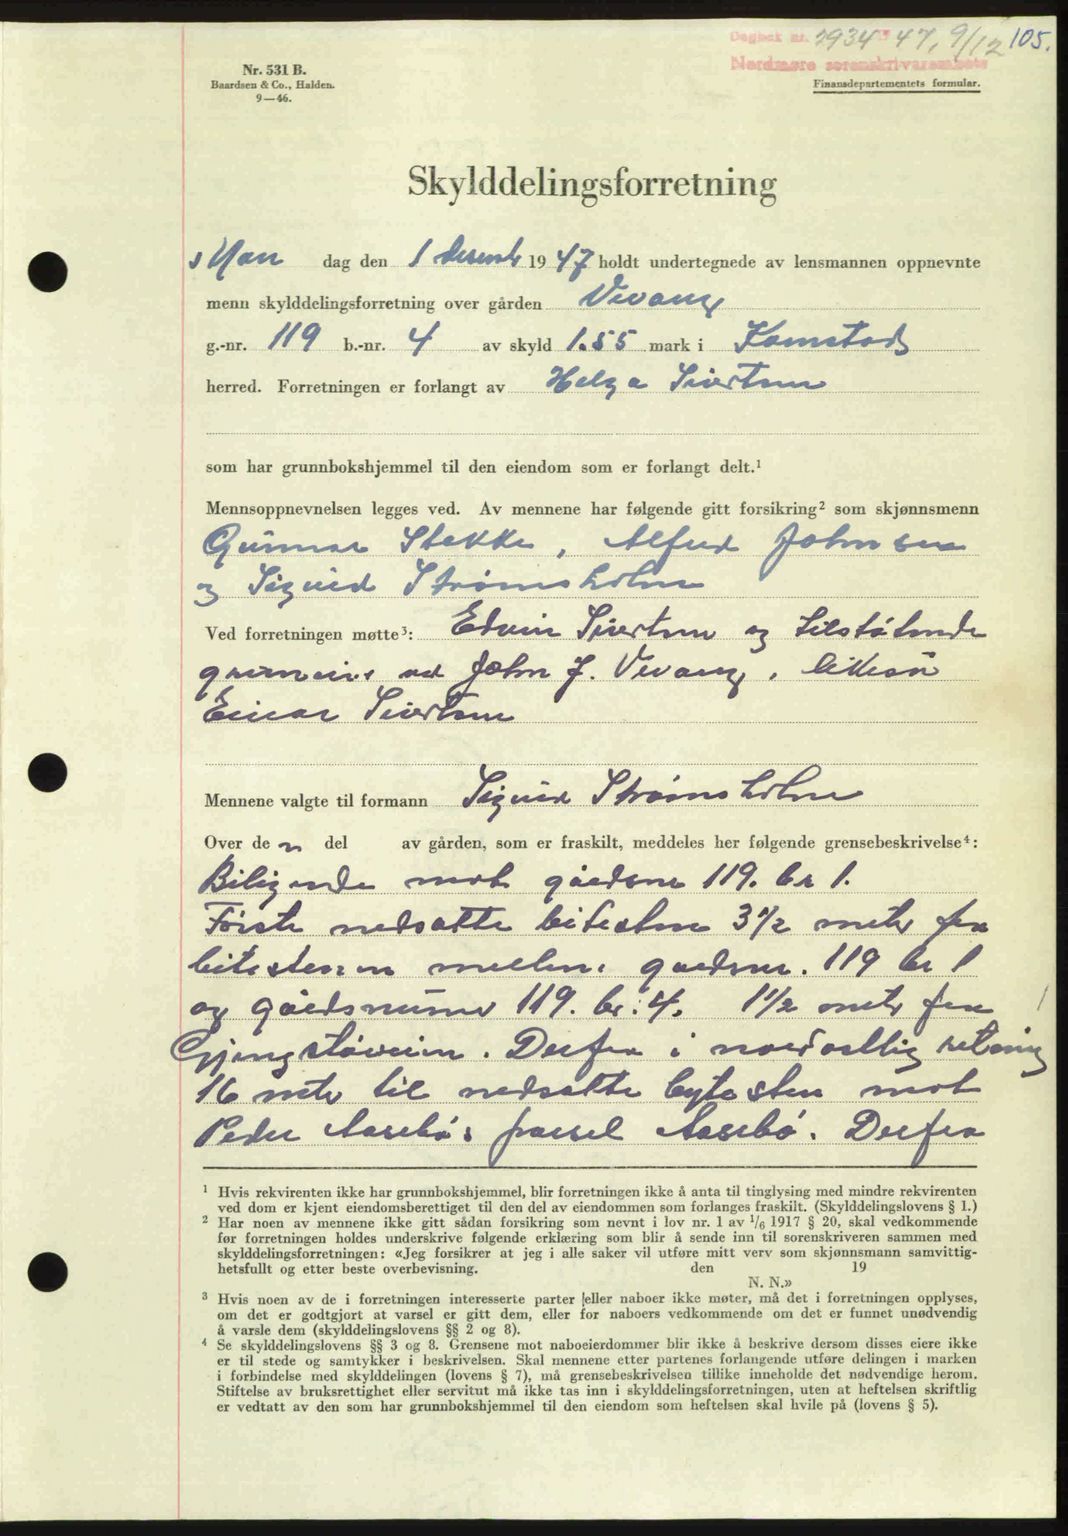 Dagbok nr. 2934 47, 9/12 105.
Nordmøre sorenskriverembete
Nr. 531 B.
Baardsen & Co., Halden.
9—46.
Finansdepartementets formular.
Skylddelingsforretning
Man dag den 1 desemb 1947 holdt undertegnede av lensmannen oppnevnte
menn skylddelingsforretning over gården Vevang
g.-nr. 119 b.-nr. 4 av skyld 1.55 mark i Kornstad
herred. Forretningen er forlangt av Helga Sivertsen
som har grunnbokshjemmel til den eiendom som er forlangt delt.¹
Mennsoppnevnelsen legges ved. Av mennene har følgende gitt forsikring² som skjønnsmenn
Gunnar Stokke, Alfred Johnsen
og Sigurd Strømsholm
Ved forretningen møtte³: Edvin Sivertsen og tilstøtende
John J. Vevang,
Einar Sivertsen
Mennene valgte til formann Sigurd Strømsholm
Over den del av gården, som er fraskilt, meddeles her følgende grensebeskrivelse⁴:
mot gårdsnr 119. br 1.
Første nedsatte bitesten 3½ meter fra
bitestenen mellem gardsnr. 119 br 1
og gårdsnumer 119. br: 4. 1½ meter fra
Gjengstøveien. Derfra i nordostlig retning
16 meter til nedsatte bytesten mot
Peder Aasebø's parsel Aasebø. Derfra
¹ Hvis rekvirenten ikke har grunnbokshjemmel, blir forretningen ikke å anta til tinglysing med mindre rekvirenten
ved dom er kjent eiendomsberettiget til den del av eiendommen som forlanges fraskilt. (Skylddelingslovens § 1.)
² Har noen av mennene ikke gitt sådan forsikring som nevnt i lov nr. 1 av 1/6 1917 § 20, skal vedkommende
før forretningen holdes underskrive følgende erklæring som blir å sende inn til sorenskriveren sammen med
skylddelingsforretningen: «Jeg forsikrer at jeg i alle saker vil utføre mitt verv som skjønnsmann samvittig-
hetsfullt og etter beste overbevisning. den 19
N. N.»
³ Hvis noen av de i forretningen interesserte parter eller naboer ikke møter, må det i forretningen opplyses,
om det er godtgjort at varsel er gitt dem, eller for naboers vedkommende om det er funnet unødvendig
å varsle dem (skylddelingslovens §§ 2 og 8).
⁴ Se skylddelingslovens §§ 3 og 8. Grensene mot naboeierdommer blir ikke å beskrive dersom disses eiere ikke
er til stede og samtykker i beskrivelsen. Skal mennene etter partenes forlangende utføre delingen i marken
i forbindelse med skylddelingen (lovens § 7), må grensebeskrivelsen tillike inneholde det nødvendige herom.
Stiftelse av bruksrettighet eller servitut må ikke tas inn i skylddelingsforretningen, uten at heftelsen skriftlig
er vedtatt av den som har grunnbokshjemmel til den eiendom som heftelsen skal hvile på (lovens § 5).